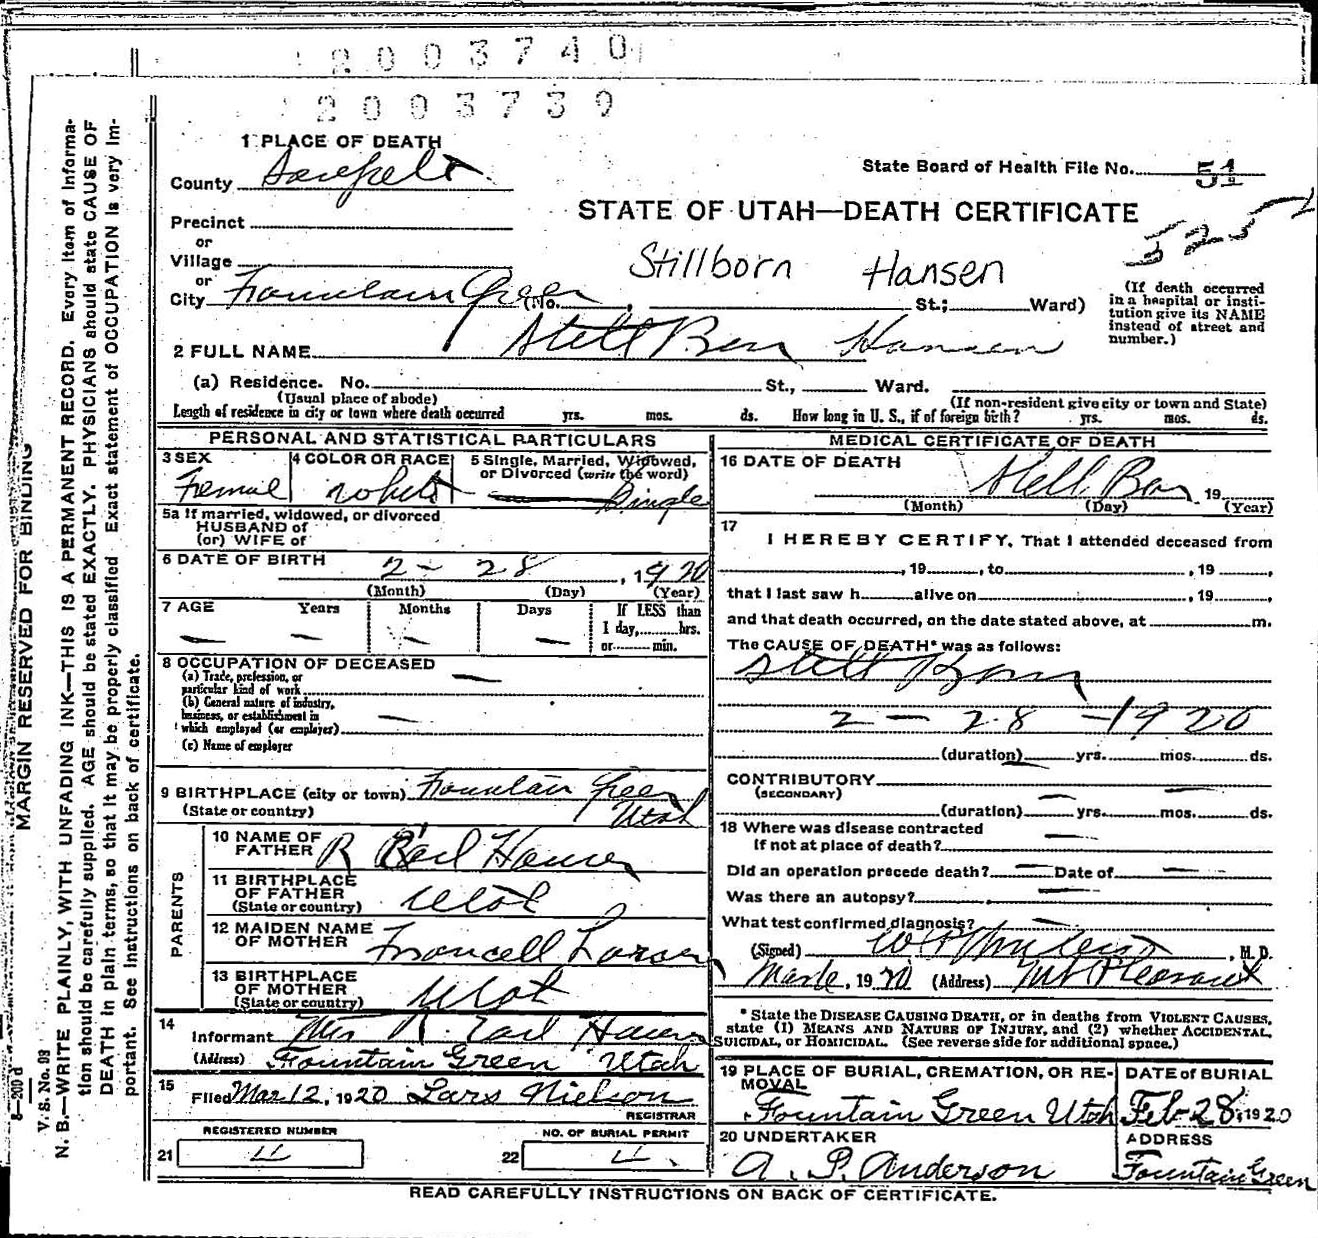 2003740
2003739
1 PLACE OF DEATH
County Sanpete
State Board of Health File No. 51
STATE OF UTAH—DEATH CERTIFICATE
5252
Precinct
or
Village
or
City Fountain Green (No. , St.; Ward)
Stillborn Hansen
(If death occurred in a hospital or institution give its NAME instead of street and number.)
2 FULL NAME Still Born Hansen
(a) Residence. No. St., Ward.
(Usual place of abode) (If non-resident give city or town and State)
Length of residence in city or town where death occurred yrs. mos. ds. How long in U. S., if of foreign birth? yrs. mos. ds.
PERSONAL AND STATISTICAL PARTICULARS
3 SEX Female
4 COLOR OR RACE White
5 Single, Married, Widowed, or Divorced (write the word) Single
5a If married, widowed, or divorced
HUSBAND of
(or) WIFE of
6 DATE OF BIRTH 2 - 28, 1920
(Month) (Day) (Year)
7 AGE Years Months Days If LESS than
1 day, hrs.
or min.
— — — —
8 OCCUPATION OF DECEASED
(a) Trade, profession, or
particular kind of work —
(b) General nature of industry,
business, or establishment in
which employed (or employer) —
(c) Name of employer
9 BIRTHPLACE (city or town) Fountain Green
(State or country) Utah
PARENTS
10 NAME OF FATHER R Earl Hansen
11 BIRTHPLACE OF FATHER (State or country) Utah
12 MAIDEN NAME OF MOTHER Larsen
13 BIRTHPLACE OF MOTHER (State or country) Utah
14
Informant Mrs R. Earl Hansen
(Address) Fountain Green Utah
15
Filed Mar 12, 1920 Lars Nielson
REGISTRAR
REGISTERED NUMBER
21 11
NO. OF BURIAL PERMIT
22 11
MEDICAL CERTIFICATE OF DEATH
16 DATE OF DEATH Still Born 19
(Month) (Day) (Year)
17
I HEREBY CERTIFY, That I attended deceased from
, 19 , to , 19 ,
that I last saw h alive on , 19 ,
and that death occurred, on the date stated above, at m.
The CAUSE OF DEATH* was as follows:
Still Born
2 - 28 - 1920
(duration) yrs. mos. ds.
CONTRIBUTORY
(SECONDARY)
(duration) yrs. mos. ds.
18 Where was disease contracted
If not at place of death? —
Did an operation precede death? — Date of —
Was there an autopsy? —
What test confirmed diagnosis? —
(Signed) , M. D.
, 1920 (Address) Mt Pleasant
* State the DISEASE CAUSING DEATH, or in deaths from VIOLENT CAUSES,
state (1) MEANS AND NATURE OF INJURY, and (2) whether ACCIDENTAL,
SUICIDAL, or HOMICIDAL. (See reverse side for additional space.)
19 PLACE OF BURIAL, CREMATION, OR REMOVAL
Fountain Green Utah
DATE of BURIAL
Feb-28, 1920
20 UNDERTAKER
A. P. Anderson
ADDRESS
Fountain Green
READ CAREFULLY INSTRUCTIONS ON BACK OF CERTIFICATE.
MARGIN RESERVED FOR BINDING
V. S. No. 98
N. B.—WRITE PLAINLY, WITH UNFADING INK—THIS IS A PERMANENT RECORD. Every item of Informa-
tion should be carefully supplied. AGE should be stated EXACTLY. PHYSICIANS should state CAUSE OF
DEATH in plain terms, so that it may be properly classified. Exact statement of OCCUPATION is very im-
portant. See instructions on back of certificate.